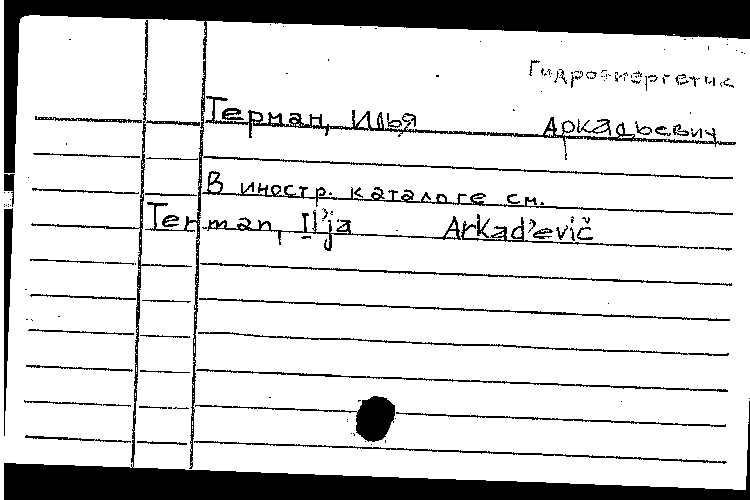 Гидроэнергетик
Терман, Илья Аркадьевич
В иностр. каталоге см.
Terman, Il'ja Arkad'evič